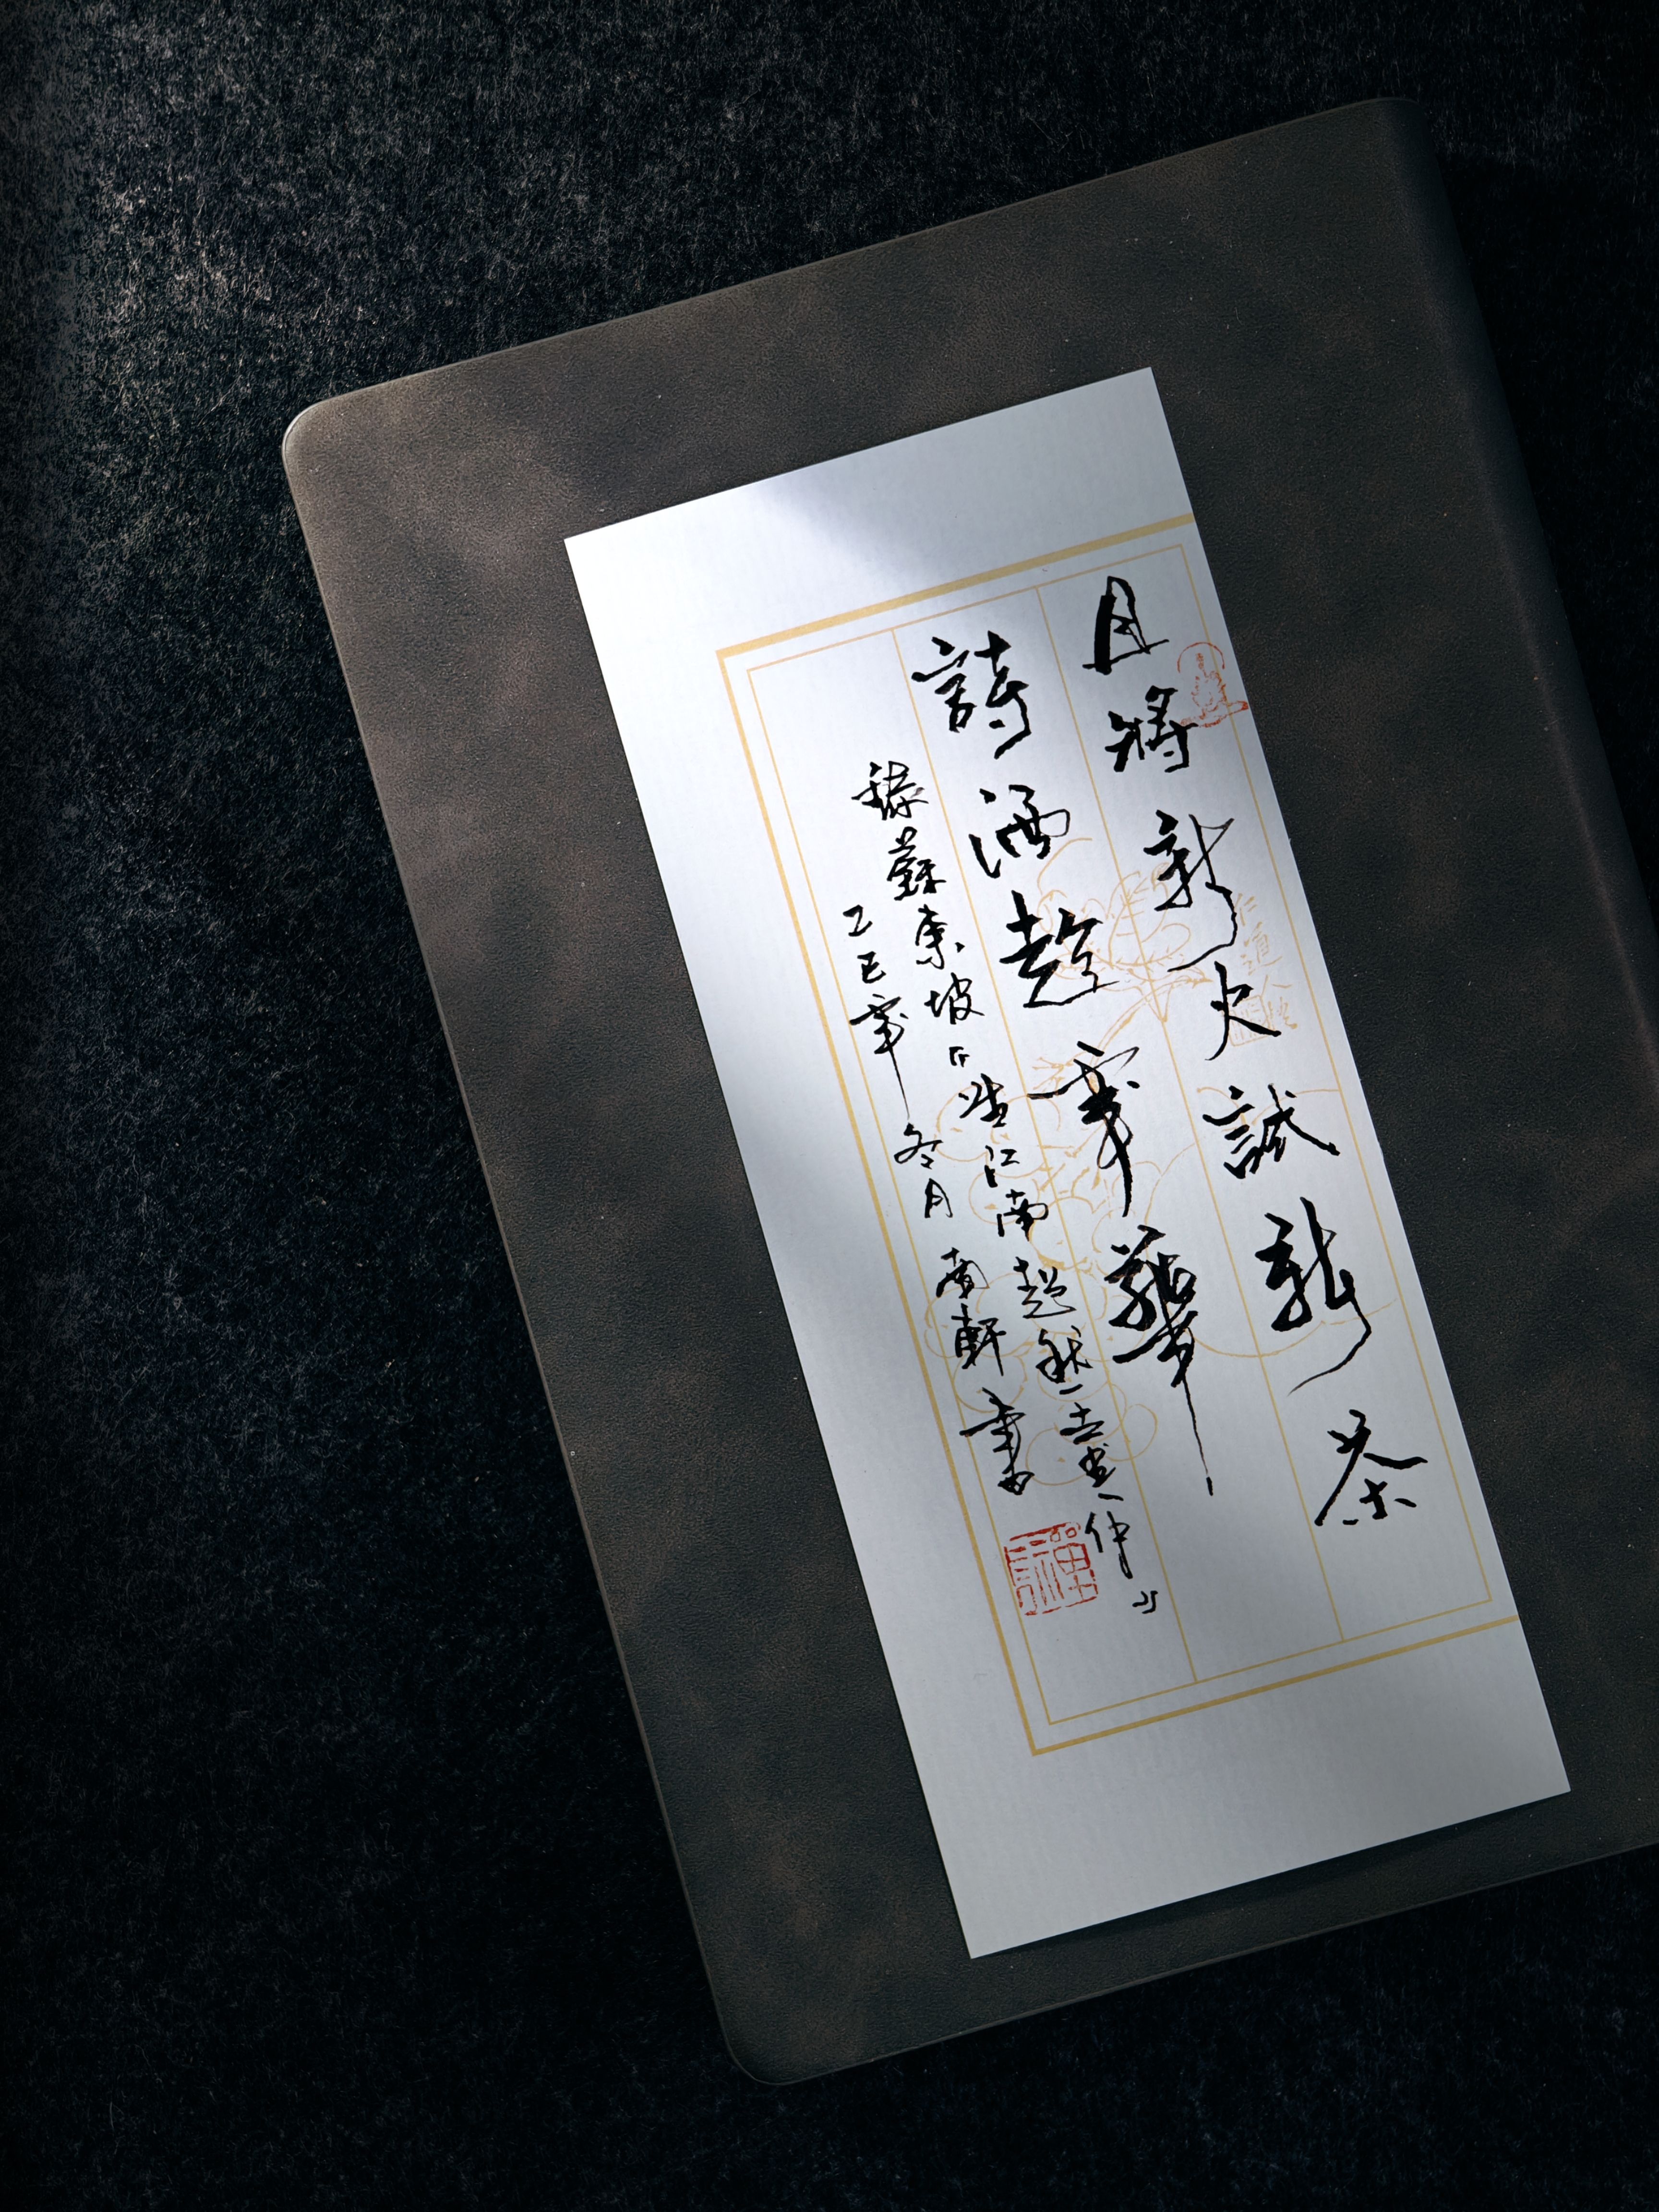 且將新火試新茶
詩酒趁年華
錄蘇東坡『望江南超然臺作』
乙巳年冬月南軒書